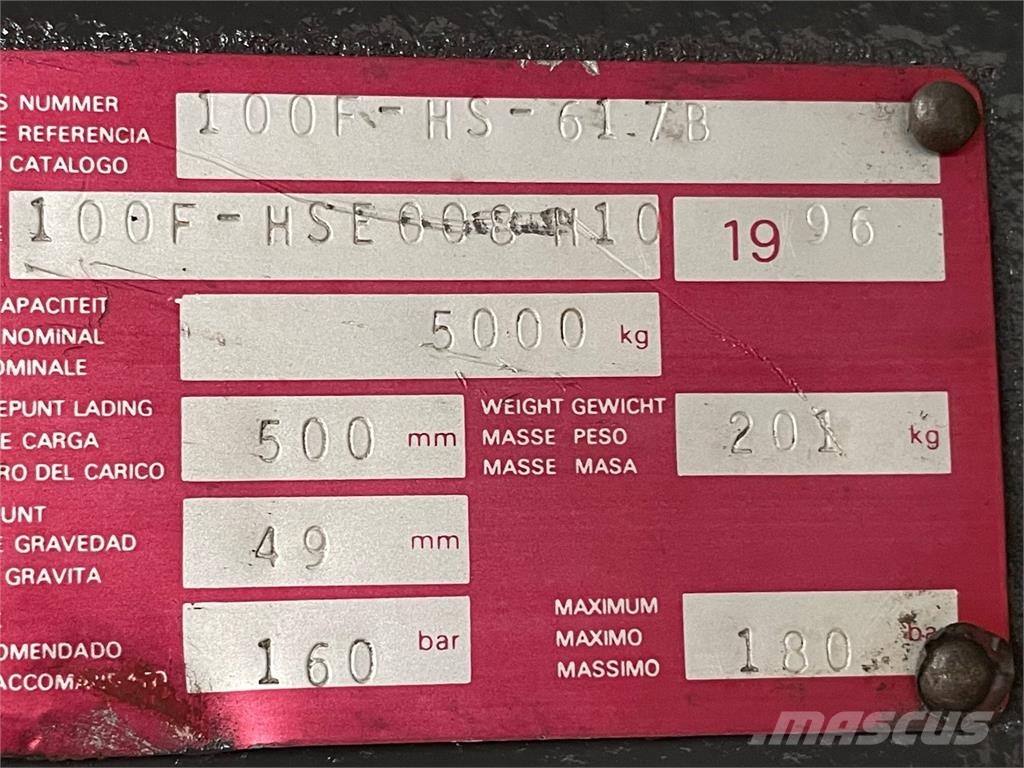 S NUMMER
E REFERENCIA
CATALOGO
100F-HS-617B
100F-HSE008 H10
19 96
APACITEIT
NOMINAL
OMINALE
5000 kg
EPUNT LADING
E CARGA
RO DEL CARICO
500 mm
WEIGHT GEWICHT
MASSE PESO
MASSE MASA
201 kg
UNT
E GRAVEDAD
GRAVITA
49 mm
OMENDADO
160 bar
MAXIMUM
MAXIMO
MASSIMO
180 ba
MASCUS